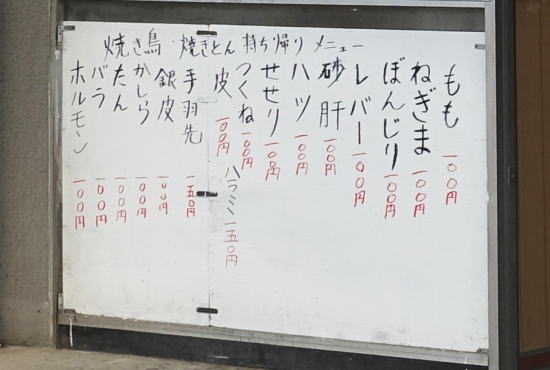 焼き鳥 焼きとん 持ち帰り メニュー
もも 一〇〇円
ねぎま 一〇〇円
ぼんじり 一〇〇円
レバー 一〇〇円
砂肝
ハツ 一〇〇円
せせり 一〇〇円
つくね 一〇〇円
皮 一〇〇円
ハラミ 一五〇円
手羽先 一五〇円
銀皮 一〇〇円
かしら 一〇〇円
たん 一〇〇円
バラ 一〇〇円
ホルモン 一〇〇円